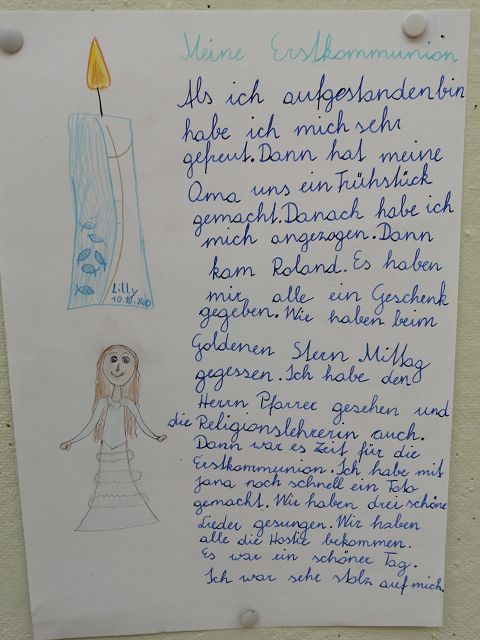 Meine Erstkommunion
Als ich aufgestanden bin
habe ich mich sehr
gefreut. Dann hat meine
Oma uns ein Frühstück
gemacht. Danach habe ich
mich angezogen. Dann
kam Roland. Es haben
mir alle ein Geschenk
gegeben. Wir haben beim
Goldenen Stern Mittag
gegessen. Ich habe den
Herrn Pfarrer gesehen und
die Religionslehrerin auch.
Dann war es Zeit für die
Erstkommunion. Ich habe mit
Jana noch schnell ein Foto
gemacht. Wir haben drei schöne
Lieder gesungen. Wir haben
alle die Hostie bekommen.
Es war ein schöner Tag.
Ich war sehr stolz auf mich.
Lilly
10.10.2020